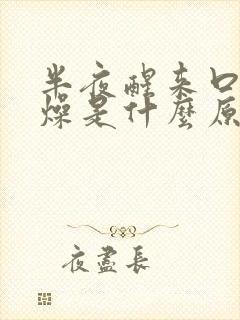 半夜醒来口
燥是什麼原
夜盡長